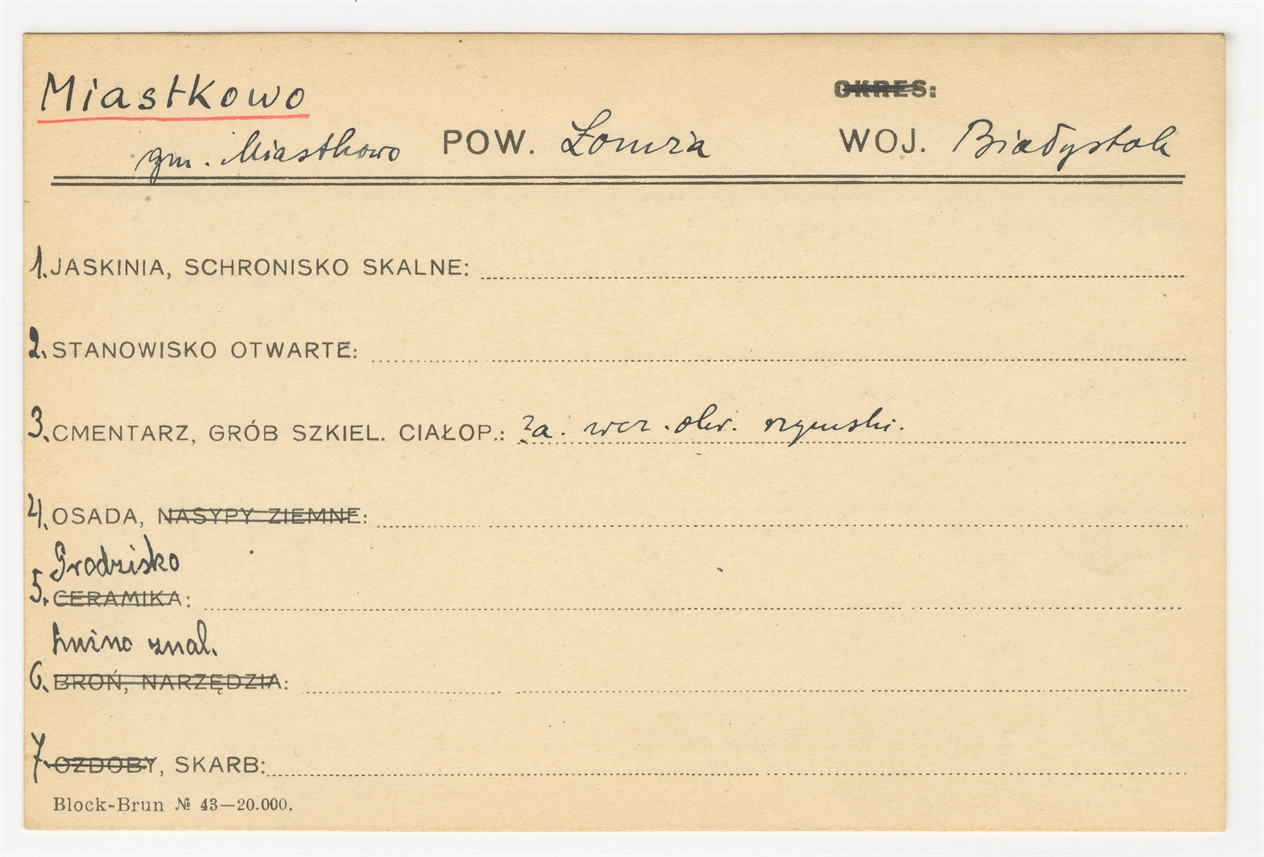 Miastkowo
OKRES:
gm. Miastkowo POW. Łomża WOJ. Białystok
1. JASKINIA, SCHRONISKO SKALNE:
2. STANOWISKO OTWARTE:
3. CMENTARZ, GRÓB SZKIEL. CIAŁOP.: wcz. okr. rzymski.
4. OSADA, NASYPY ZIEMNE:
Grodzisko
5. CERAMIKA:
luźno znal.
6. BROŃ, NARZĘDZIA:
7. OZDOBY, SKARB:
Block-Brun № 43—20.000.